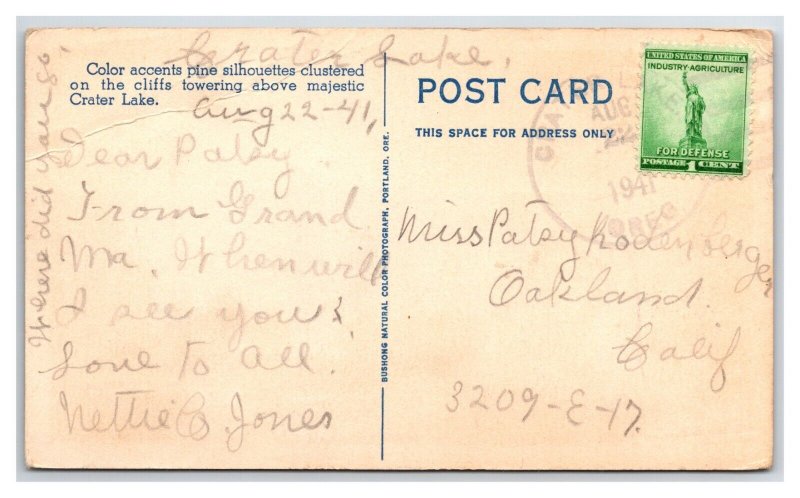 Crater Lake,
Aug 22-41,
Color accents pine silhouettes clustered
on the cliffs towering above majestic
Crater Lake.
Dear Patsy
From Grand
Ma. When will
I see you?
Love to all.
Nettie C Jones
Where did you go.
BUSHONG NATURAL COLOR PHOTOGRAPH, PORTLAND, ORE.
POST CARD
THIS SPACE FOR ADDRESS ONLY
UNITED STATES OF AMERICA
INDUSTRY·AGRICULTURE
FOR DEFENSE
POSTAGE 1 CENT
LAKE
AUG
1941
OREG
Miss Patsy
Oakland.
Calif
3209-E-17.